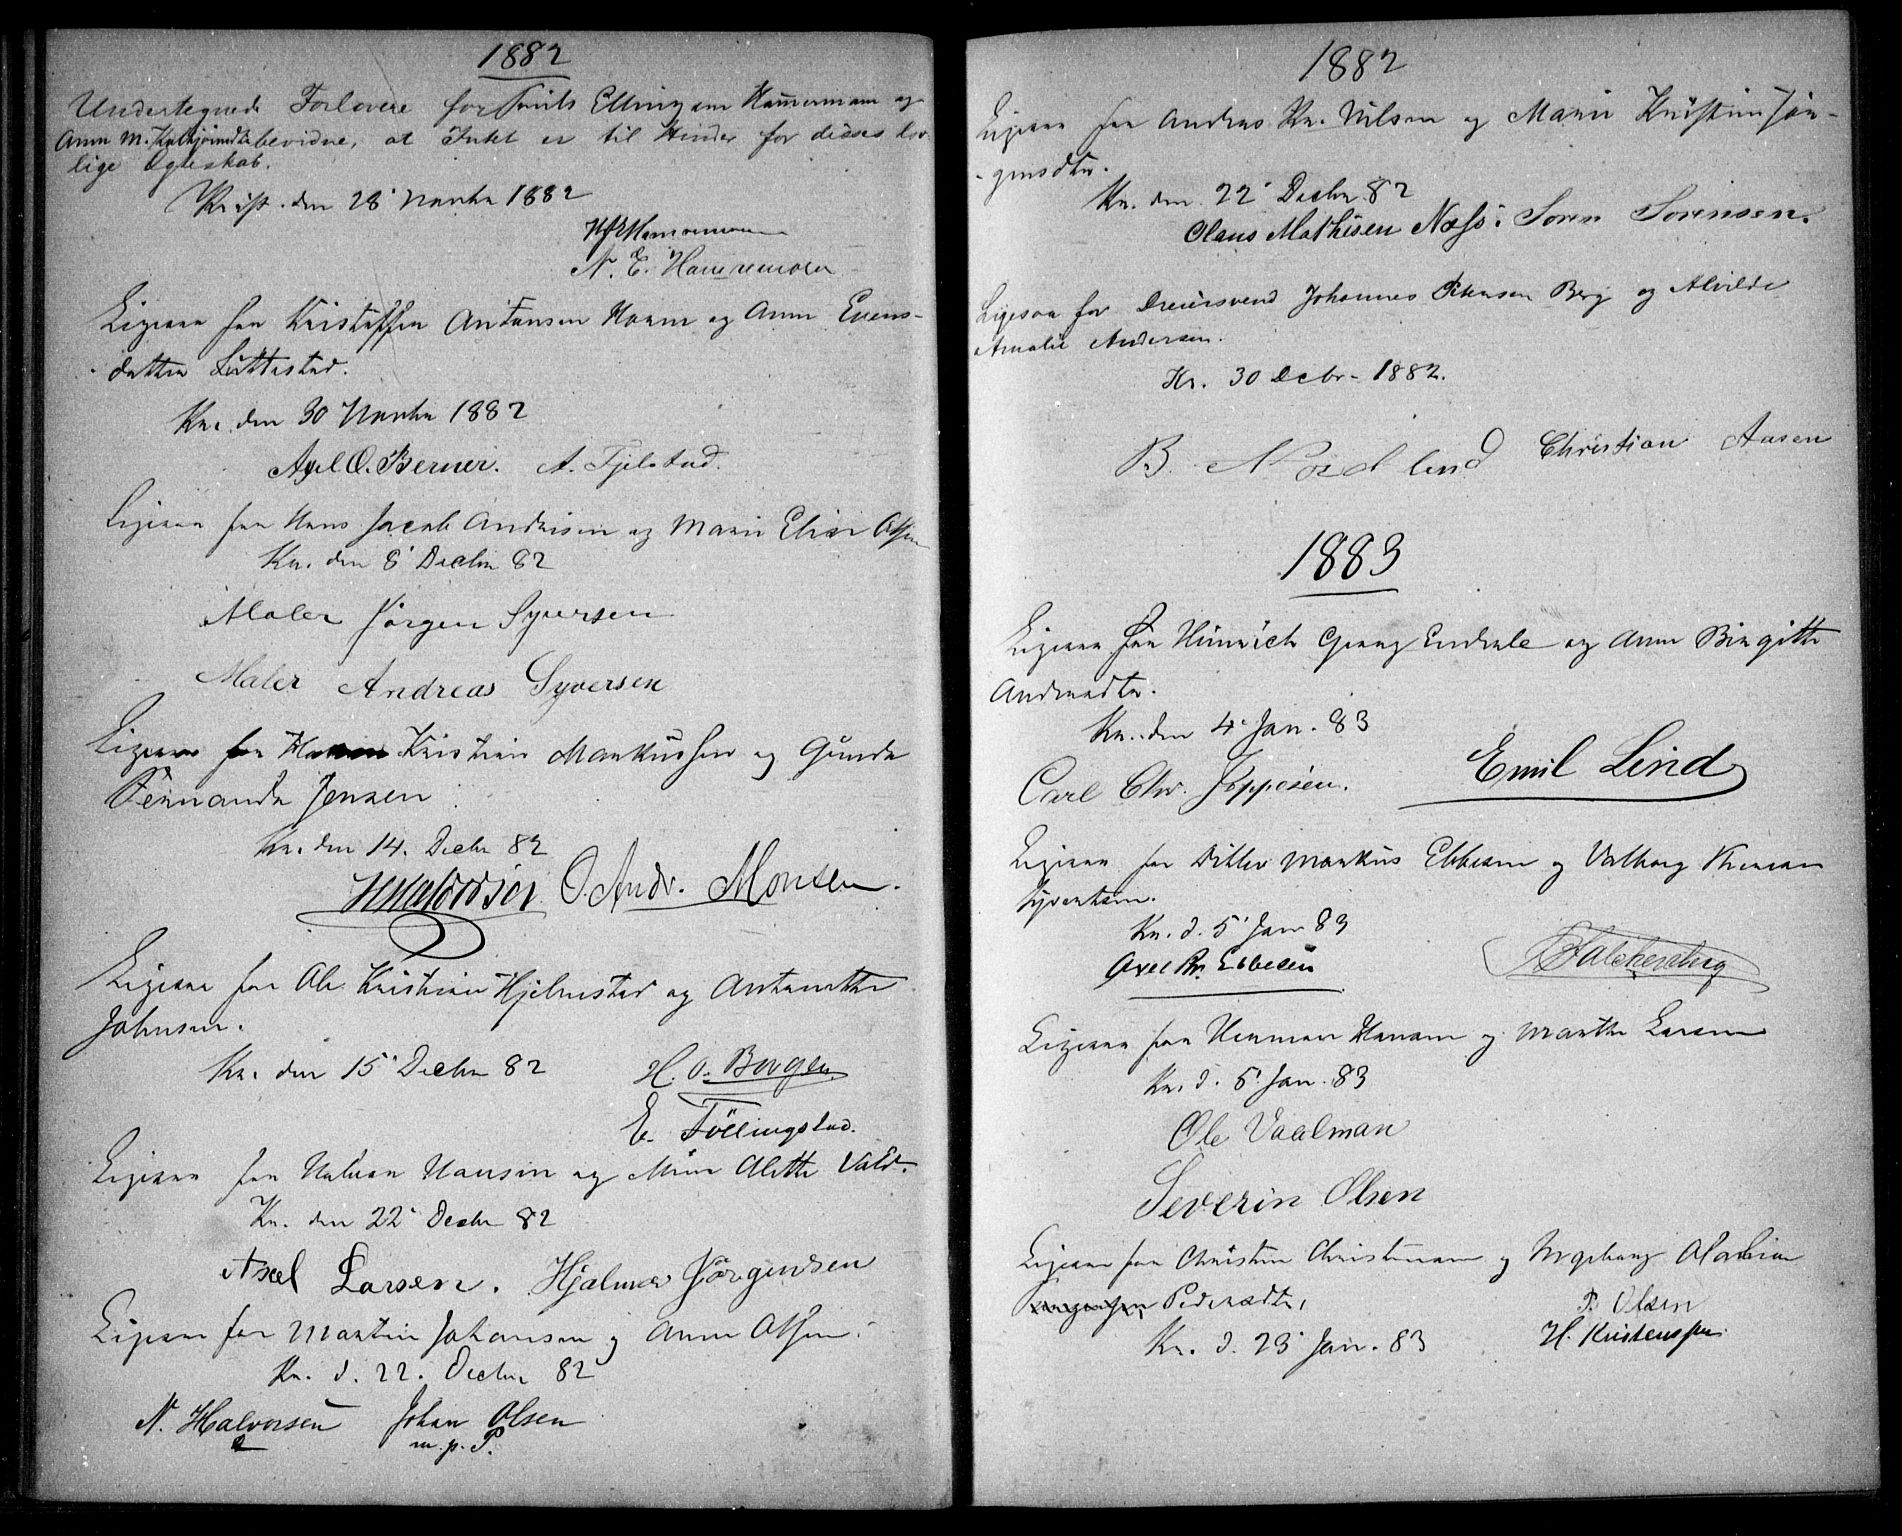 1882
Undertegnede Forlovere for Ellingsen Hammermoen og
Anne M. bevidne, at Intet er til Hinder for disses lov-
lige Egteskab.
Krist. den 28' Novbr 1882
N. E. Hammermoen
Ligesaa for Kristoffer Antonsen Haavn og Anne Evens-
datter Luttestad.
Kra. den 30 Novbr 1882
Axel O. Berner. A. Fjelstad.
Ligesaa for Hans Jacob Andresen og Marie Elise Olsen
Kra. den 8' Decbr 82
Maler Jørgen Syversen
Maler Andreas Syversen
Ligesaa for Kristian Markussen og Gunda
Fernanda Jensen
Kra. den 14. Decbr 82
O. Andr. Monsen.
Ligesaa for Ole Kristian Hjelmstad og Antonette
Johnsen.
Kra. den 15' Decbr 82
H. O. Borgen
E. Föllingstad.
Ligesaa for Halvor Hansen og Mina Alette Vold.
Kra. den 22' Decbr 82
Axel Larsen. Hjalmar Jørgensen
Ligesaa for Martin Johansen og Anne Olsen.
Kra. d. 22. Decbr 82
N. Halvorsen Johan Olsen
m. p. P.
1882
Ligesaa for Andreas Kr. Nilsen og Marie Kristine Jør-
gensdtr.
Kra. den 22' Decbr 82
Olaus Mathisen Næss. Soren Sorensen.
Ligesaa for Dreiersvend Johannes Petersen Berg og Alvilde
Amalie Andersen.
Kr. 30 Decbr. 1882.
B. Nordlund Christian Aasen
1883
Ligesaa for Hinrich Georg Enderle og Anne Birgitte
Andersdtr.
Kra. den 4' Jan. 83
Carl Chr. Jeppesen. Emil Lind
Ligesaa for Ditlev Markus Ebbesen og Valborg Therese
Syvertsen.
Kra. d. 5' Jan 83
Axel Br. Ebbesen Falckenberg
Ligesaa for Herman Hansen og Marthe Larsen
Kra. d. 5' Jan. 83
Ole Vaalman
Severin Olsen
Ligesaa for Christen Christensen og Ingeborg Mathea
Pedersdtr.
P. Olsen
H. Kristensen
Kra. d. 23' Jan. 83